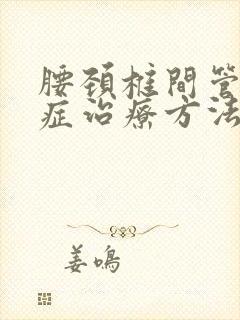 腰颈椎間管
症治療方法
姜鳴